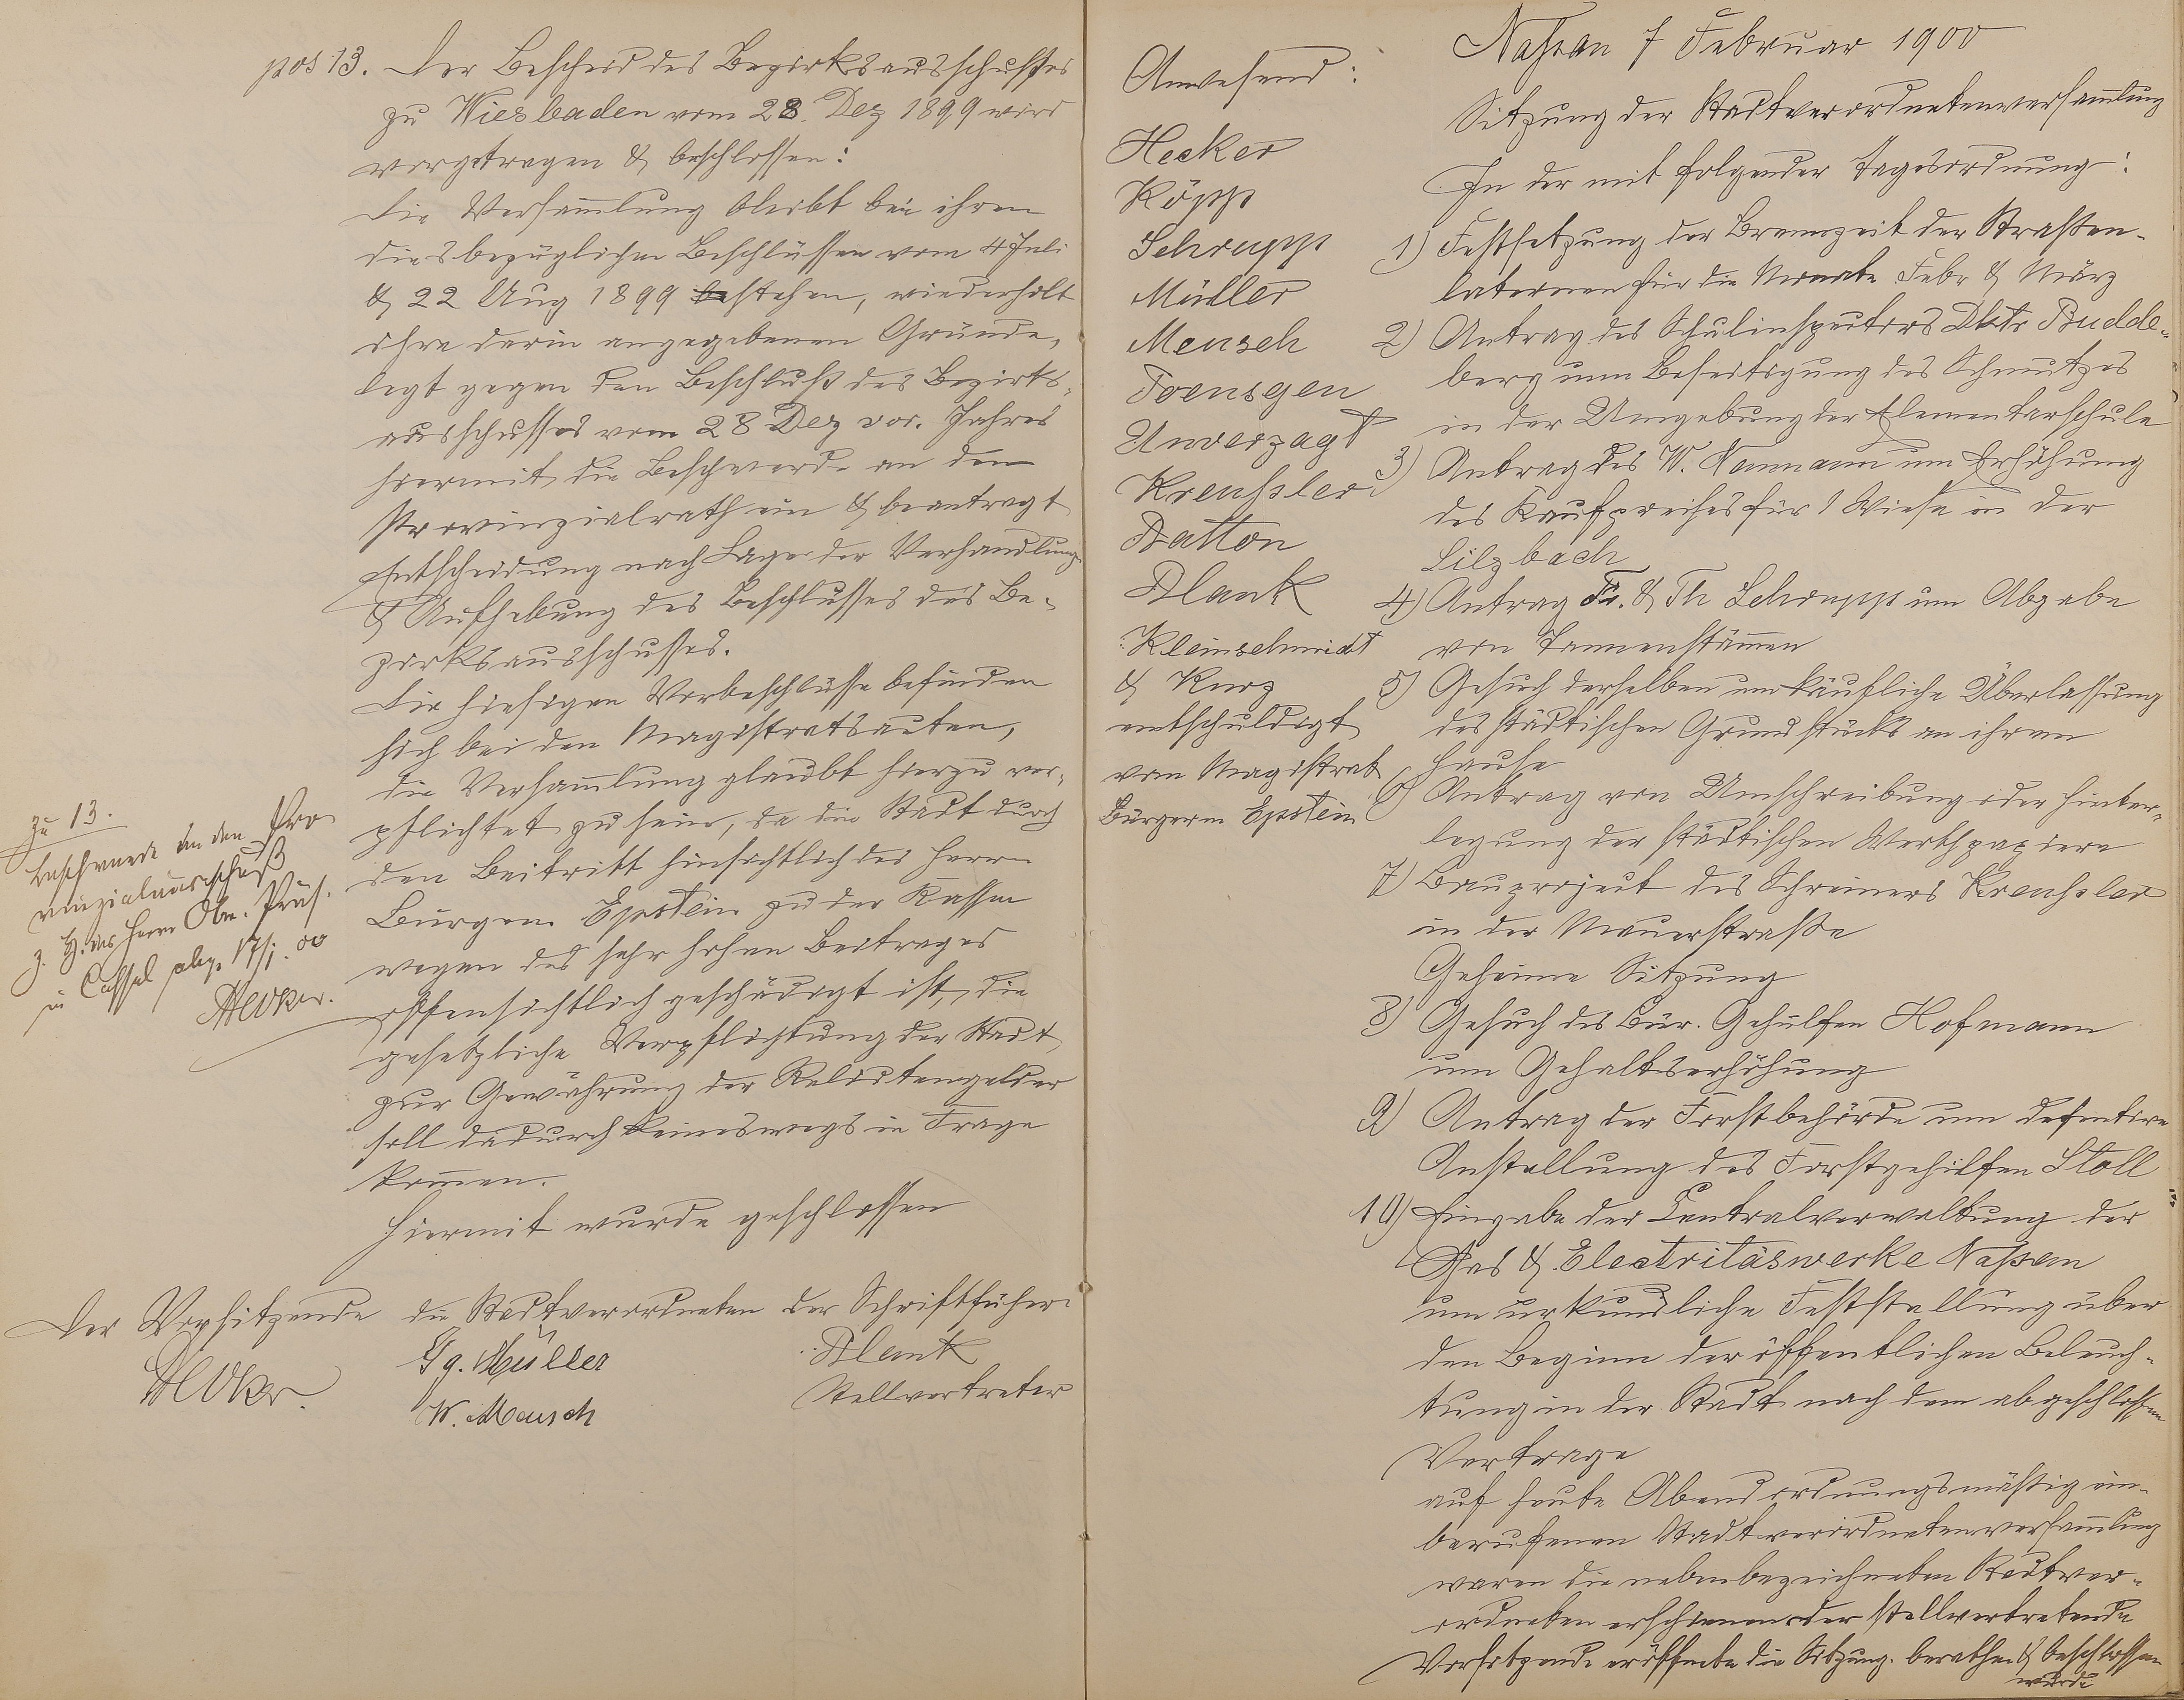 pos 13. Der Bescheid des Bezirksausschusses
zu Wiesbaden vom 28. Dez 1899 wird
vorgetragen & beschlossen:
Die Versam̄lung bleibt bei ihren
diesbezüglichen Beschlüssen vom 4 Juli
& 22 Aug 1899 bestehen, wiederholt
ihre darin angegebenen Gründe,
legt gegen den Beschluß des Bezirks-
ausschusses vom 28 Dez vor. Jahres
hiermit die Beschwerde an den
Provinzialrath ein & beantragt
Entscheidung nach Lage der Verhandlung
& Aufhebung des Beschlusses des Be-
zirksausschusses.
Die hiesigen Vorbeschlüsse befinden
sich bei den Magistratsakten,
die Versam̄lung glaubt hierzu ver-
pflichtet zu sein, da die Stadt durch
den Beitritt hinsichtlich des Herrn
Bürgerm. Epstein zu der Kassen
wegen des sehr hohen Beitrages
offensichtlich geschädigt ist, die
gesetzliche Verpflichtung der Stadt
zur Gewährung der Reliktengelder
soll dadurch keineswegs in Frage
kom̄en.
Hiermit wurde geschlossen
zu 13.
Beschwerde an den Pro
vinzialausschuß
z. H. des Herrn Obr. Präs.
in Cassel abg. 17/1. 00
Hecker.
Der Vorsitzende die Stadtverordneten der Schriftführer
Hecker. Gg. Müller Blank
W. Mensch Stellvertreter
Nassau 7 Februar 1900
Sitzung der Stadtverordnetenversam̄lung
Anwesend:
Hecker
Köpp
Schrupp
Müller
Mensch
Toensgen
Unverzagt
Kreußler
Batton
Blank
Kleinschmidt
& Kurz
entschuldigt
vom Magistrat
Bürgerm Epstein
In der mit folgender Tagesordnung:
1) Festsetzung der Brennzeit der Straßen-
laternen für die Monate Febr & März
2) Antrag des Schulinspectors Dktr Budde-
berg um Beseitigung des Schmutzes
in der Umgebung der Elementarschule
3) Antrag des W. Naumann um Erhöhung
des Kaufpreises für 1 Wiese in der
Lilzbach
4) Antrag Fr. & Th Schrupp um Abgabe
von Tannenstäm̄en
5) Gesuch derselben um käufliche Überlassung
des städtischen Grundstücks an ihrem
Hause
6) Antrag von Umschreibung oder Hinter-
legung der städtischen Werthpapiere
7) Bauproject des Schreiners Kreußler
in der Mauerstraße
Geheime Sitzung
8) Gesuch des Bür. Gehülfen Hofmann
um Gehaltserhöhung
9) Antrag der Forstbehörde um defentive
Anstellung des Forstgehilfen Stoll
10) Eingabe der Centralverwaltung der
Gas & Electritäswerke Nassau
um urkundliche Feststellung über
den Beginn der öffentlichen Beleuch-
tung in der Stadt nach dem abgeschlossen
Vertrage
auf heute Abend ordnungsmäßig ein-
berufenen Stadtverordnetenversam̄lung
waren die nebenbezeichneten Stadtver-
ordneten erschienen der stellvertretende
Vorsitzende eröffnete die Sitzung. berathen & beschlossen
wurde